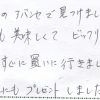 のアバンセで見つけまし
も美味しくてビックリ
すぐに買いに行きまし
にもプレゼントしました